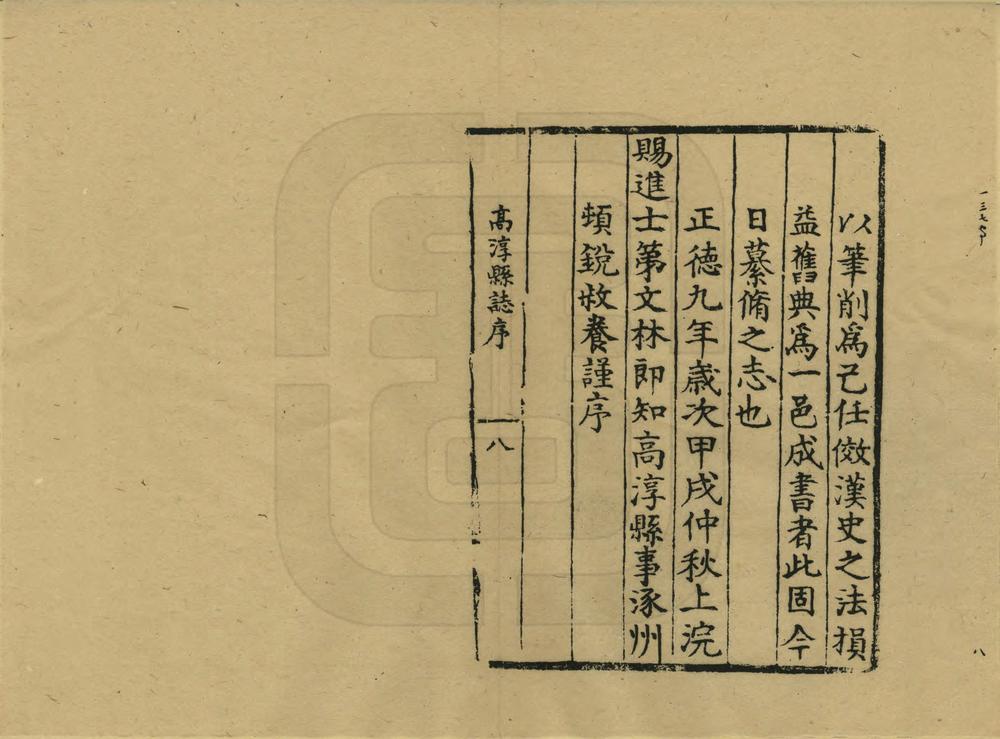 以筆削爲己任傚漢史之法損
益舊典爲一邑成書者此固今
日纂脩之志也
正德九年歲次甲戌仲秋上浣
賜進士第文林郎知高淳縣事涿州
頓銳敉養謹序
高淳縣誌序
八
八